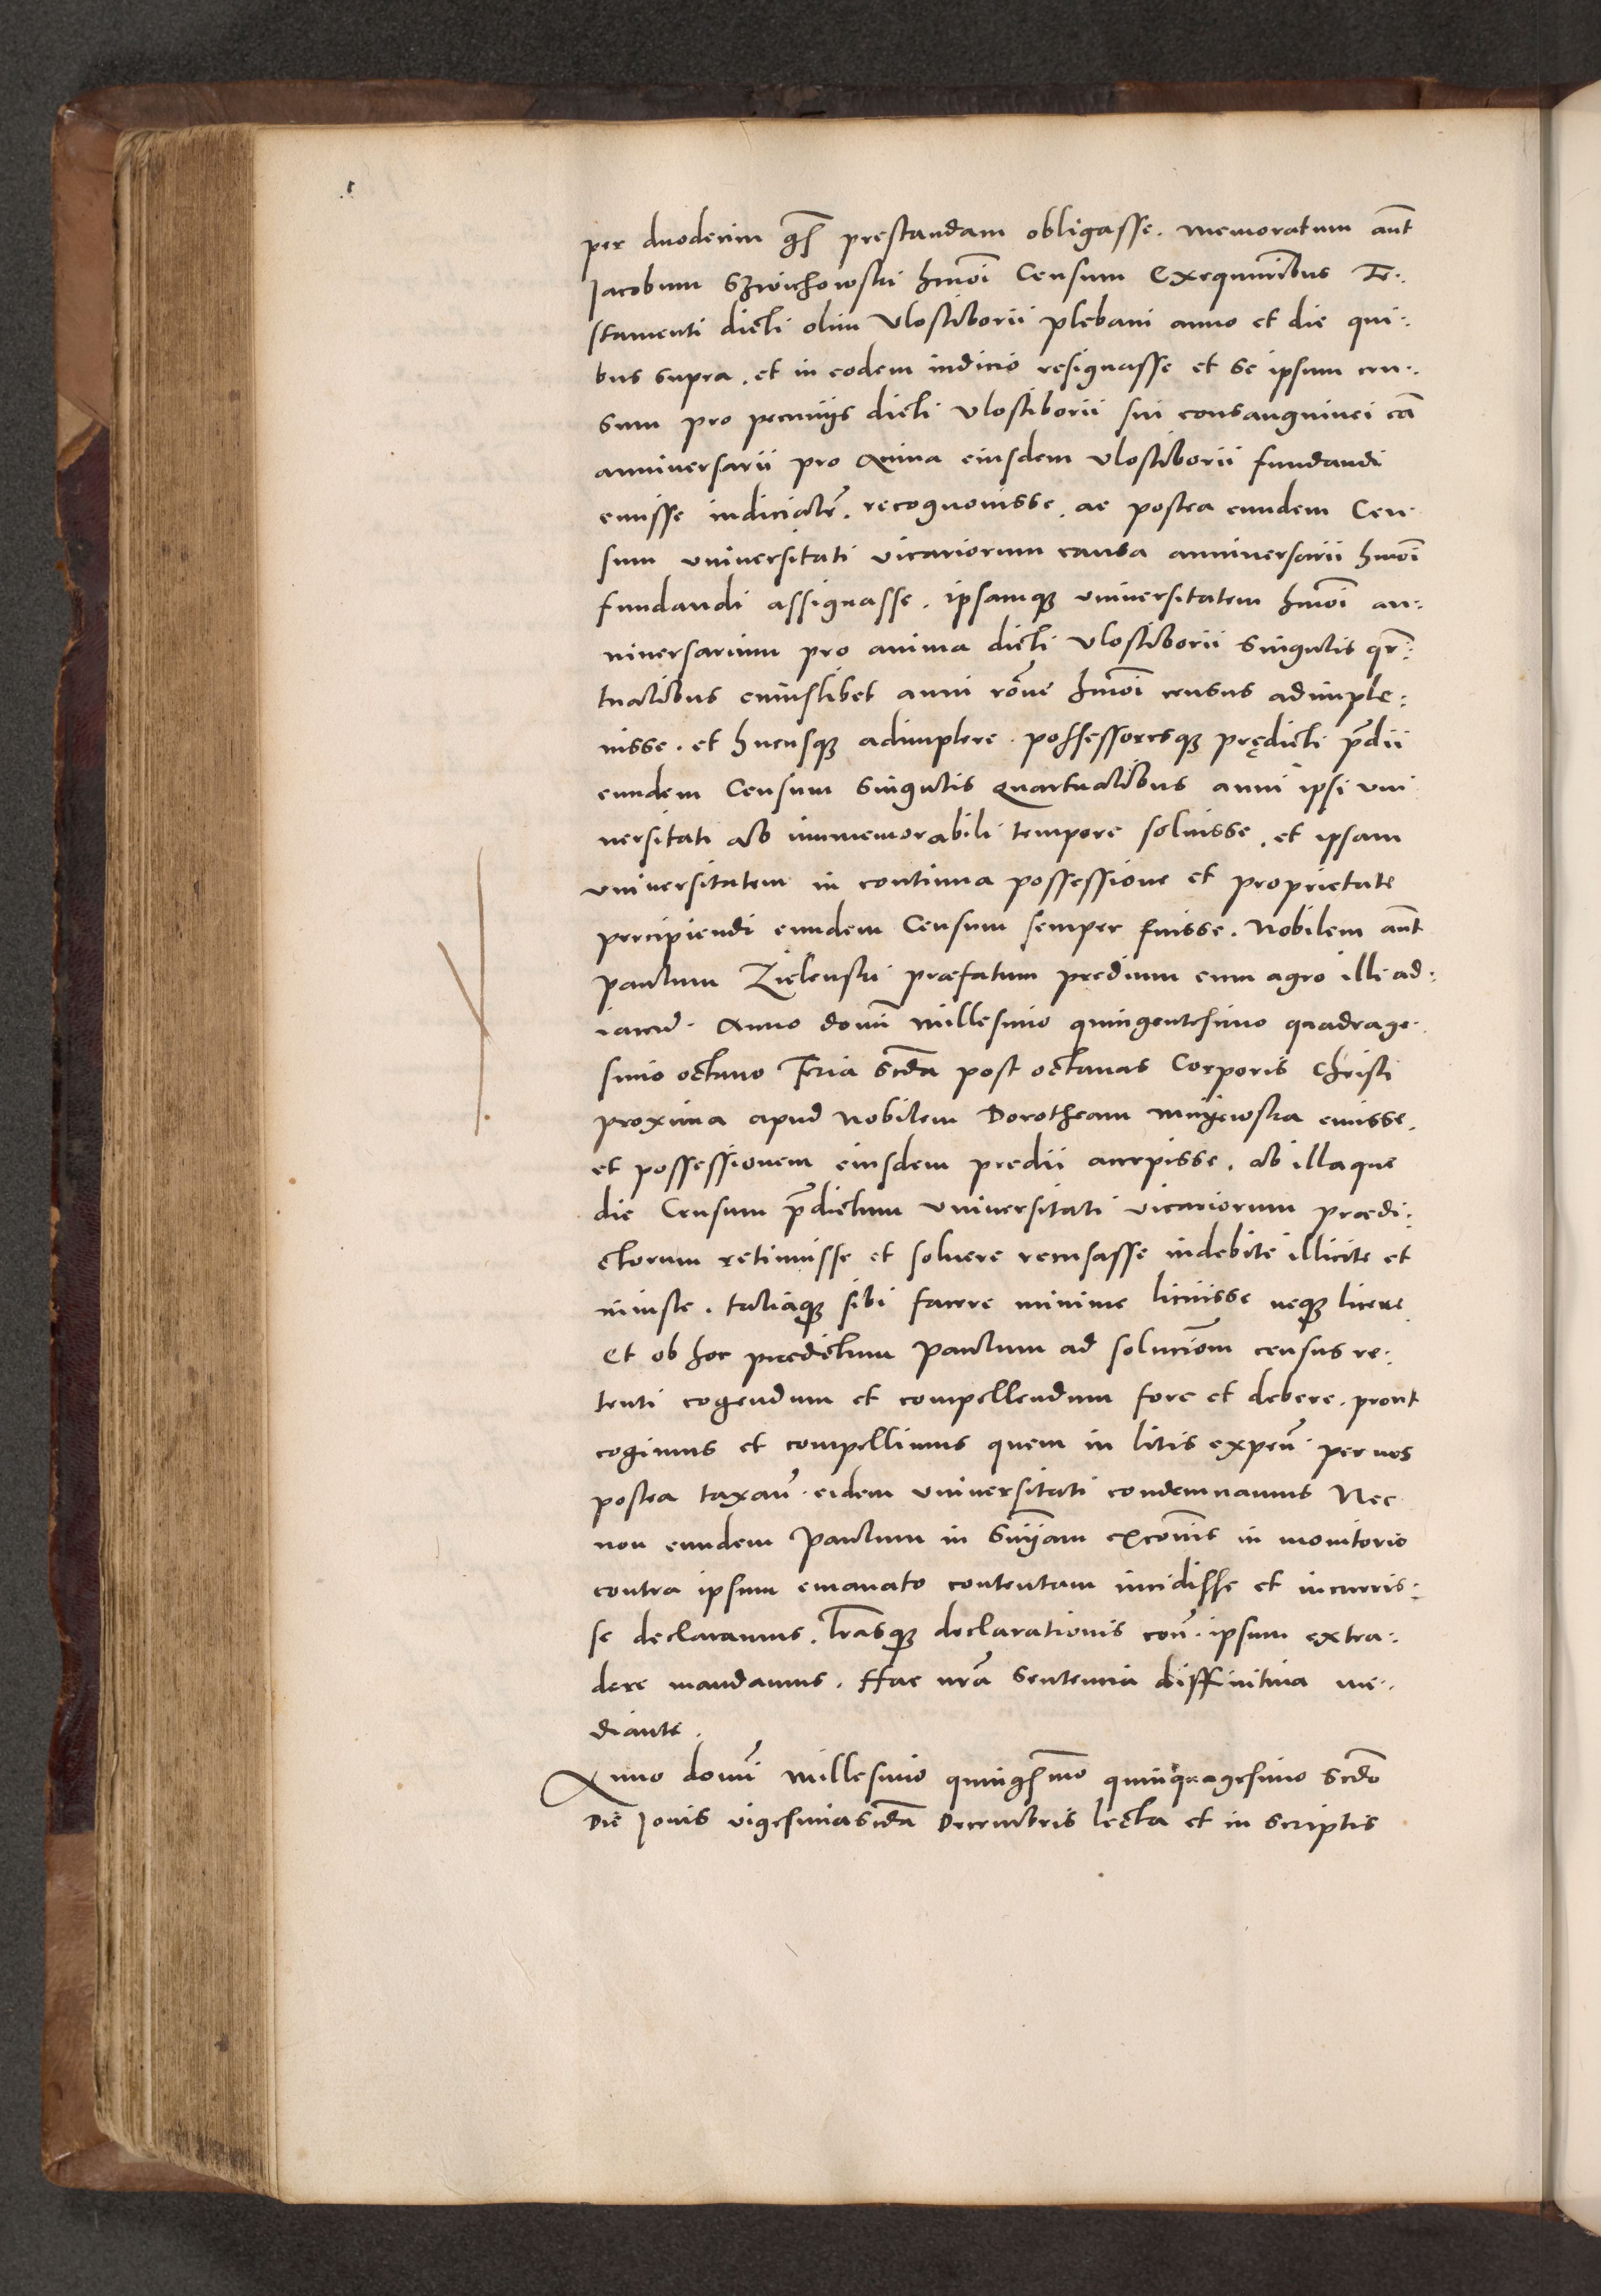 per duodecim gͦs prestandam obligasse. memoratum aūt
Jacobum Szwichowski hm̄oi Censum Exequutīibus Te:
stamenti dicti olim Vlostiborii plebani anno et die qui:
bus supra. et in eodem iudicio resignasse et se ipsum cen:
sum pro pecuniis dicti Vlostiborii sui consanguinei cā
anniversarii pro Anima eiusdem Vlostiborii fundandi
emisse iudicialr̄. recognovisse. ac postea eundem Cen
sum universitati vicariorum causa anniversarii hm̄oi
fundandi assignasse. ipsamqꝫ universitatem hm̄oi an:
niversarium pro anima dicti Vlostiborii singulis qr̄:
tualibus cuiuslibet anni rōne hm̄oi census adimple:
uisse. et hucusqꝫ adimplere. possessoresqꝫ prędicti p̄dii
eundem Censum singulis Quartualibus anni ipsi vni
uersitati ab immemorabili tempore soluisse. et ipsam
vniuersitatem in continua possessione et proprietate
percipiendi eundem Censum semper fuisse. Nobilem aūt
paulum Zielenski præfatum predium cum agro illi ad:
iacen̄. Anno domī millesimo quingentesimo quadrage:
simo octauo Feria scďa post octauas Corporis Christi
proxima apud nobilem Dorotheam emisse.
et possessionem eiusdem predii accepisse. ab illaque
die Censum p̄dictum Vniuersitati vicariorum prædi:
ctorum retinuisse et soluere recusasse indebite illicite et
iniuste. taliaqꝫ sibi facere minime licuisse neqꝫ licere
Et ob hoc prædictum Paulum ad soluciōem census re:
tenti cogendum et compellendum fore et debere. prout
cogimus et compellimus quem in litis expen̄. per nos
postea taxan̄. eidem vniuersitati condemnamus Nec
non eundem Paulum in sn̄iam excōis in monitorio
contra ipsum emanato contentam incidisse et incurris:
se declaramus. Lr̄asqꝫ declarationis con̄. ipsum extra:
dere mandamus. Hac nr̄a sententia diffinitiua me:
diante.
Anno domī millesimo quingͦsimo quinquagesimo scďo
Die Jouis vigesimascďa Decembris lecta et in scriptis